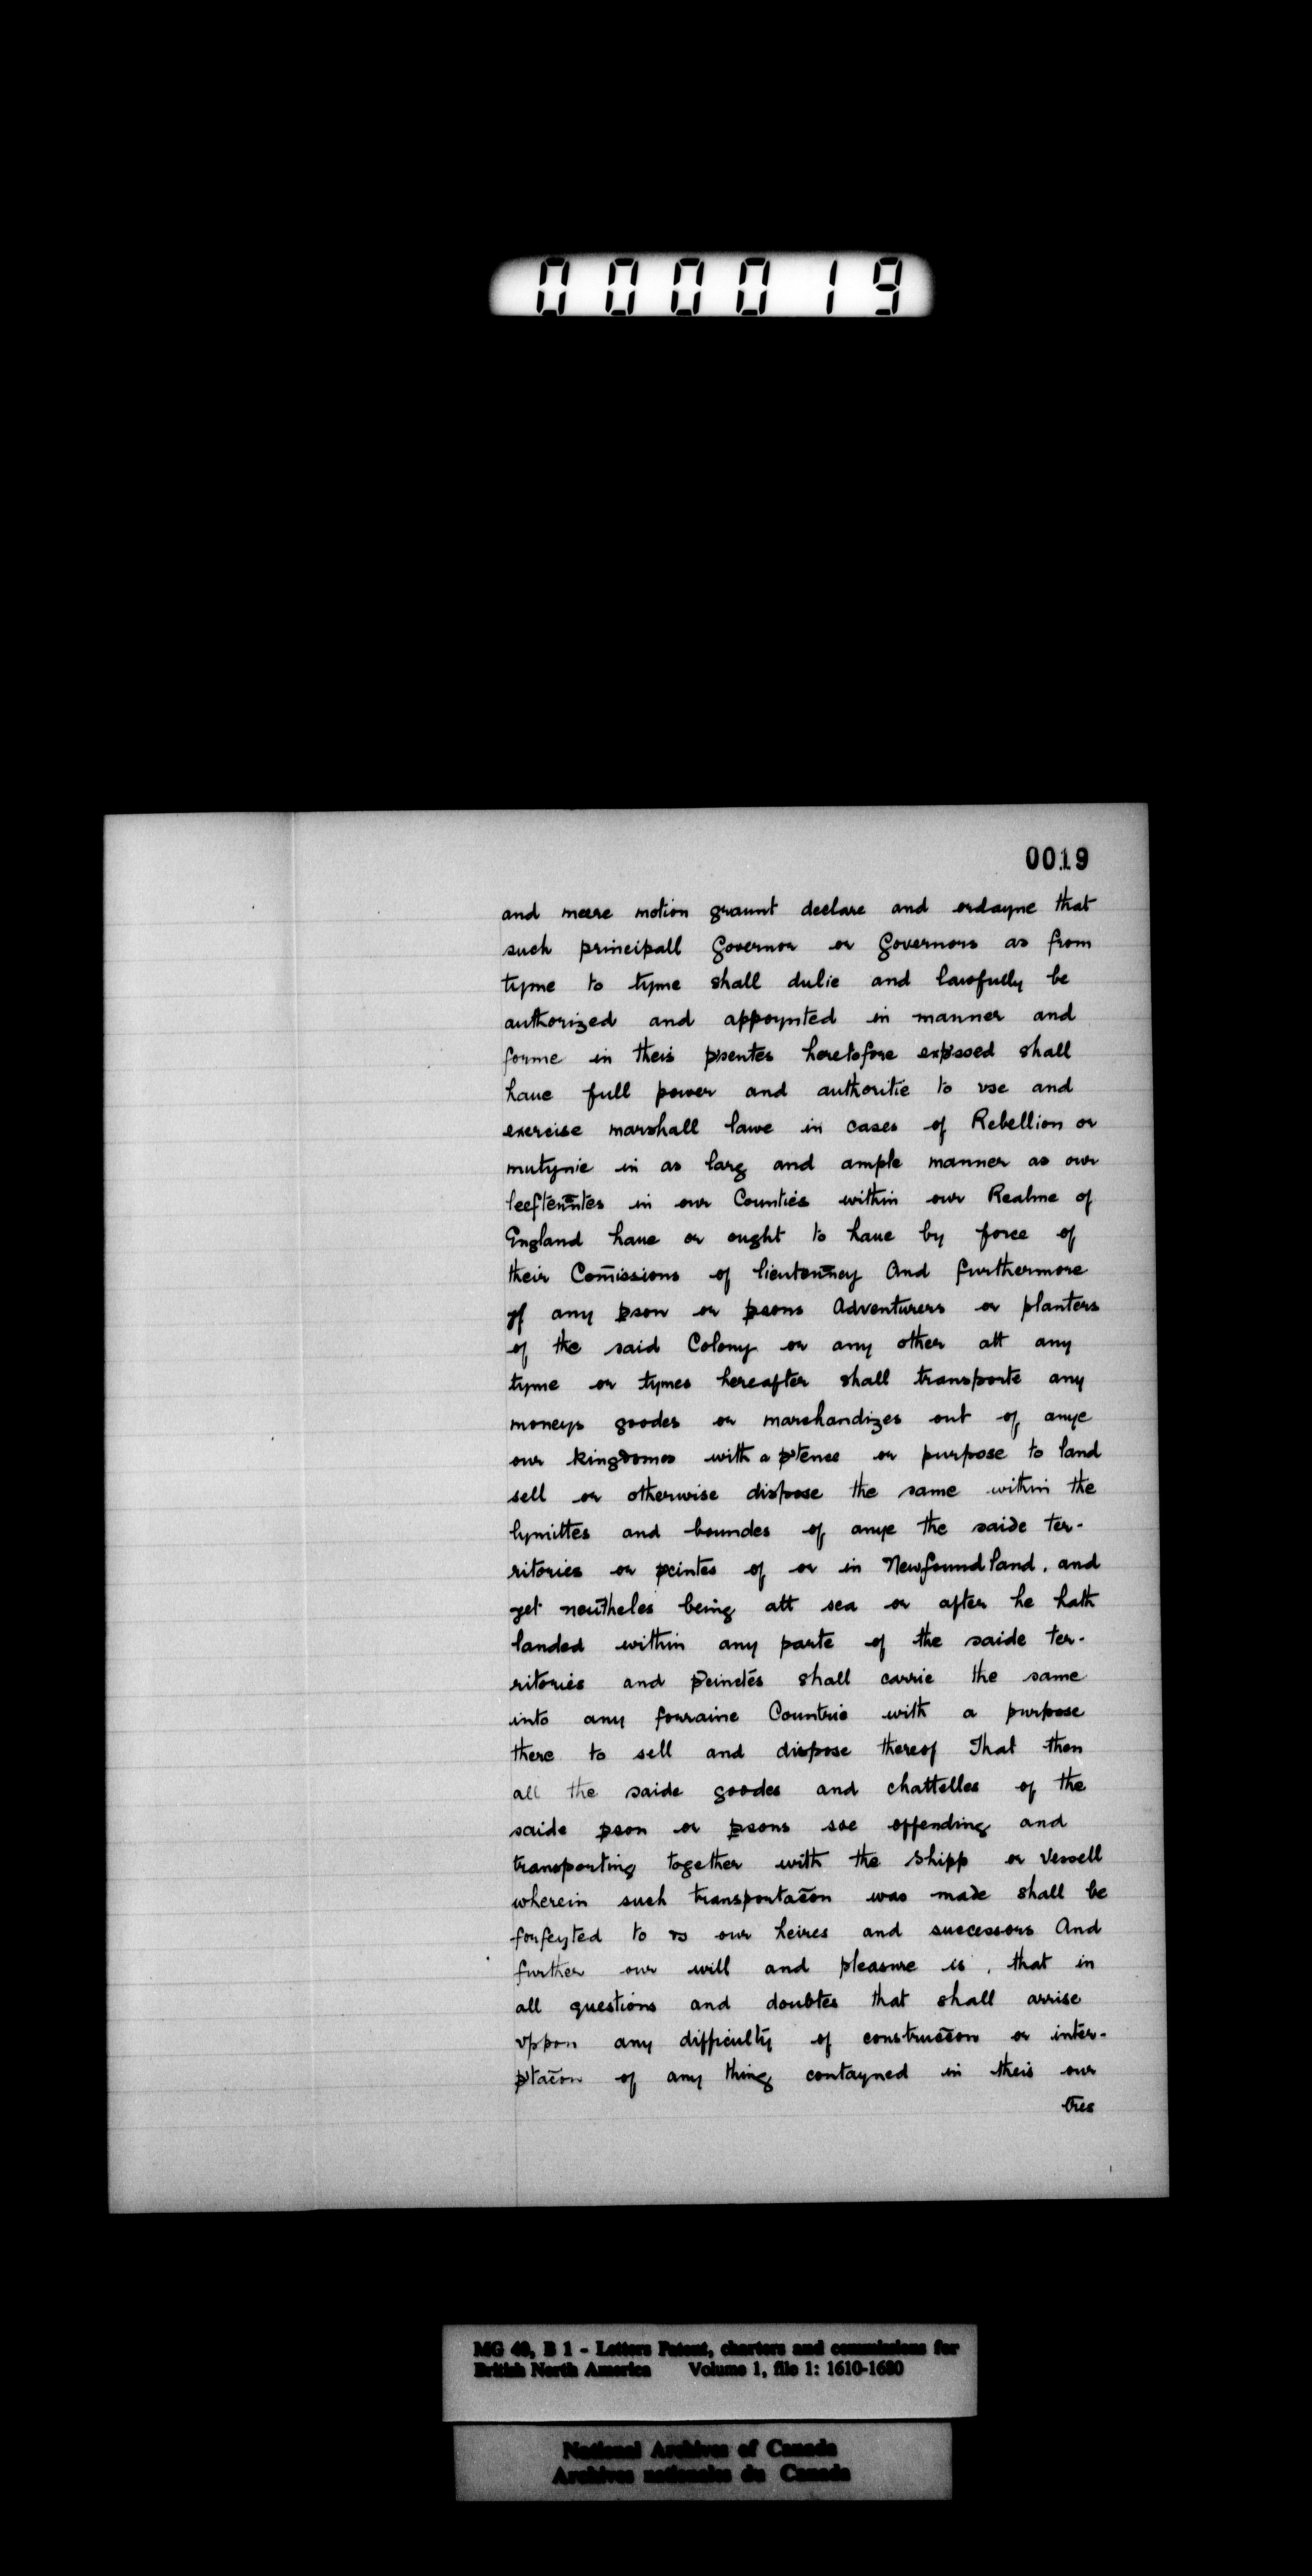 000019
0019
and meere motion graunt declare and ordayne that
such principall Governor or Governors as from
tyme to tyme shall dulie and lawfully be
authorized and appoynted in manner and
forme in theis p'sentes heretofore exp'ssed shall
haue full power and authoritie to vse and
exercise marshall lawe in cases of Rebellion or
mutynie in as larg and ample manner as our
leeftenn̄tes in our Counties within our Realme of
England haue or ought to haue by force of
their Com̄issions of lieutenn̄cy And furthermore
yf any ꝑson or ꝑsons Adventurers or planters
of the said Colony or any other att any
tyme or tymes hereafter shall transporte any
moneys goodes or marchandizes out of anye
our kingdomes with a p'tence or purpose to land
sell or otherwise dispose the same within the
lymittes and boundes of anye the saide ter-
ritories or pcintes of or in Newfoundland, and
yet neūtheles being att sea or after he hath
landed within any parte of the saide ter-
ritories and p̄cinctes shall carrie the same
into any forraine Countrie with a purpose
there to sell and dispose thereof That then
all the saide goodes and chattelles of the
saide ꝑson or ꝑsons soe offending and
transporting together with the Shipp or Vessell
wherein such transportac̄on was made shall be
forfeyted to vs our heires and successors And
further our will and pleasure is, that in
all questions and doubtes that shall arrise
vppon any difficulty of construcc̄on or inter-
p'tac̄on of any thing contayned in theis our
tres
MG 40, B 1 - Letters Patent, charters and commissions for
British North America Volume 1, file 1: 1610-1680
National Archives of Canada
Archives nationales du Canada